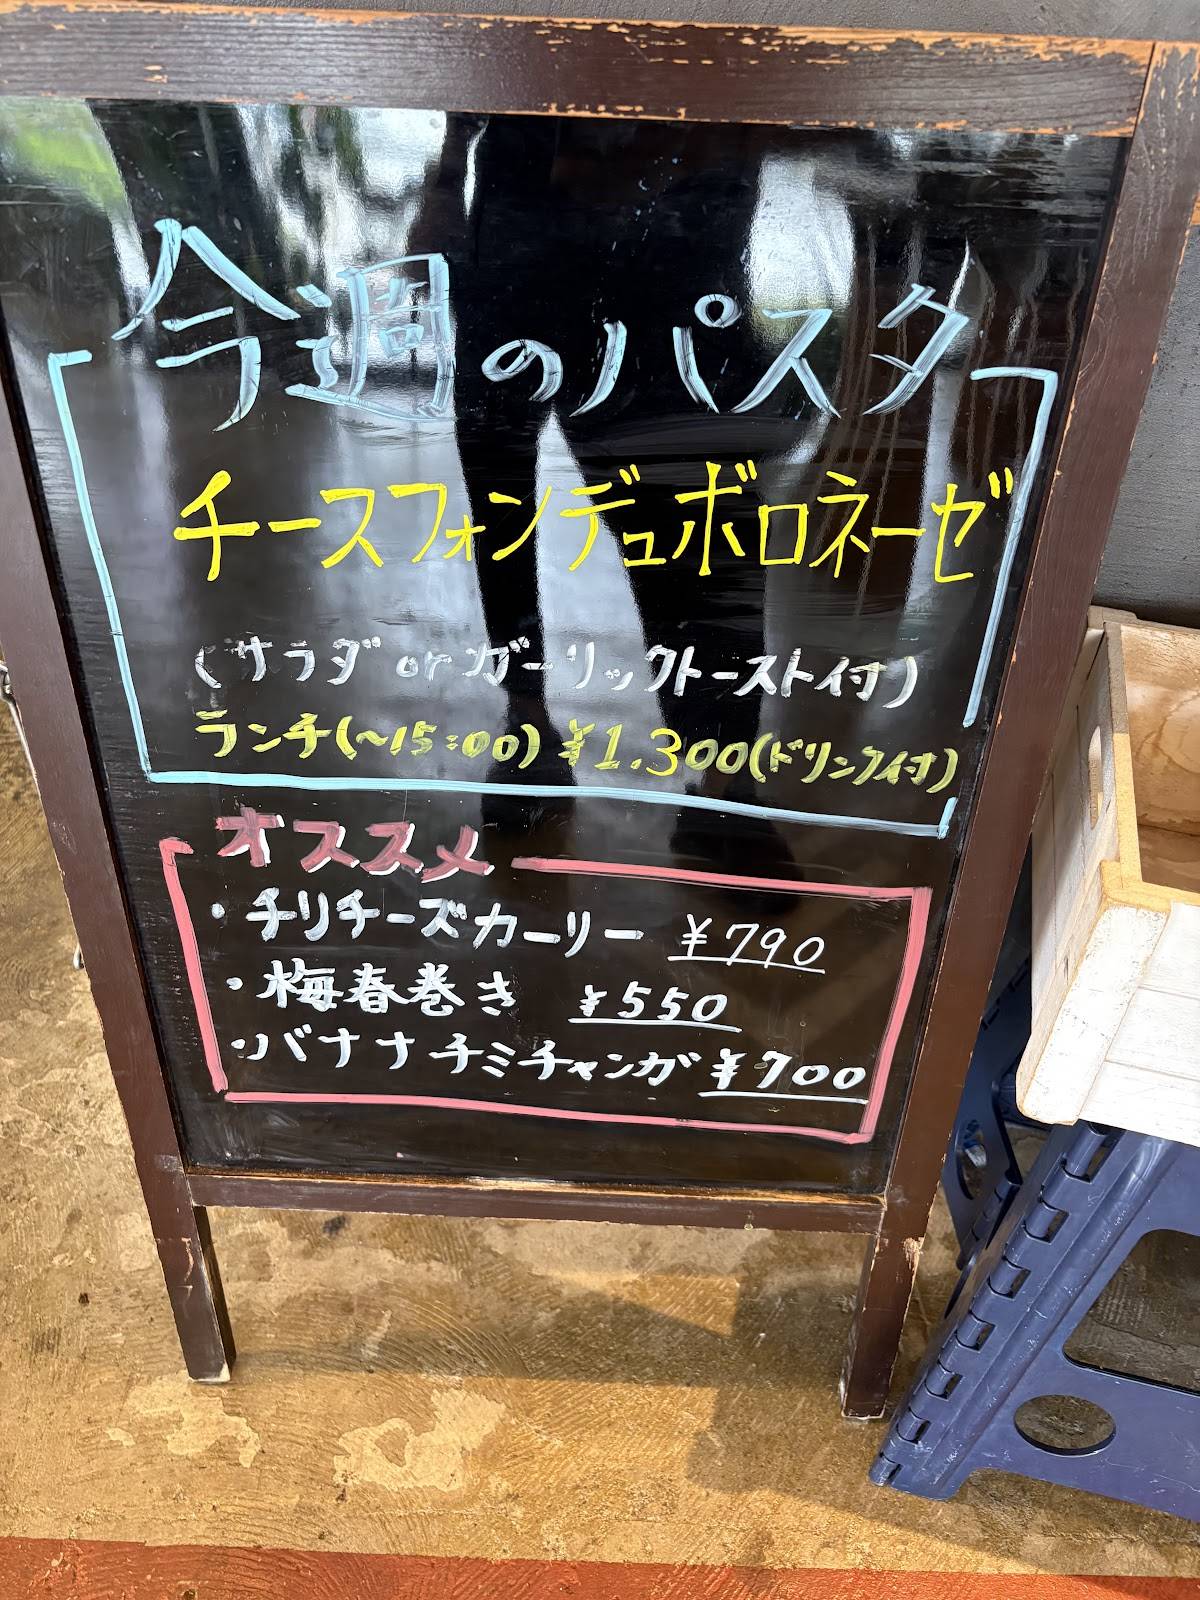 今週のパスタ
チースフォンデュボロネーゼ
(サラダorガーリックトースト付)
ランチ(〜15:00)¥1.300(ドリンク付)
オススメ
・チリチーズカーリー ¥790
・梅春巻き ¥550
・バナナチミチャンガ ¥700